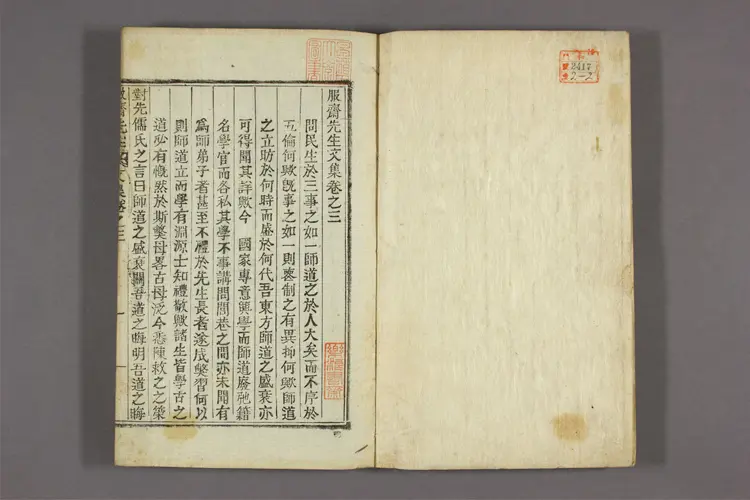 服齋先生文集卷之三
問民生於三事之如一師道之於人大矣而不序於
五倫何歟旣事之如一則喪制之有異抑何歟師道
之立昉於何時而盛於何代吾東方師道之盛衰亦
可得聞其詳歟今 國家專意興學而師道廢弛籍
名學官而各私其學不事講問閭巷之間亦未聞有
爲師弟子者甚至不禮於先生長者遂成弊習何以
則師道立而學有淵源士知禮敬歟諸生皆學古之
道必有慨然於斯弊母畧古母泛今悉陳救之之策
對先儒氏之言曰師道之盛衰關吾道之晦明吾道之晦
服齋先生文集卷之三
2417
2-2